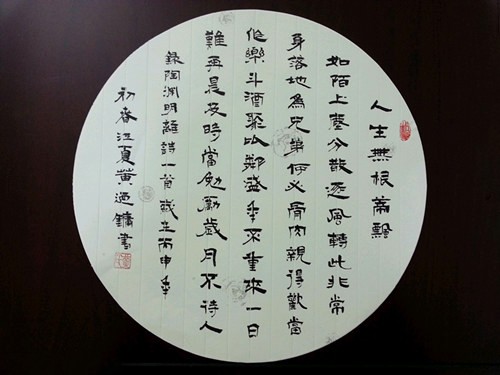 人生無根蒂飄
如陌上塵分散逐風轉此非常
身落地為兄弟何必骨肉親得歡當
作樂斗酒聚比鄰盛年不重來一日
難再晨及時當勉勵歲月不待人
錄陶渊明雜詩一首歲在丙申年
初春江夏黃迺鏞書